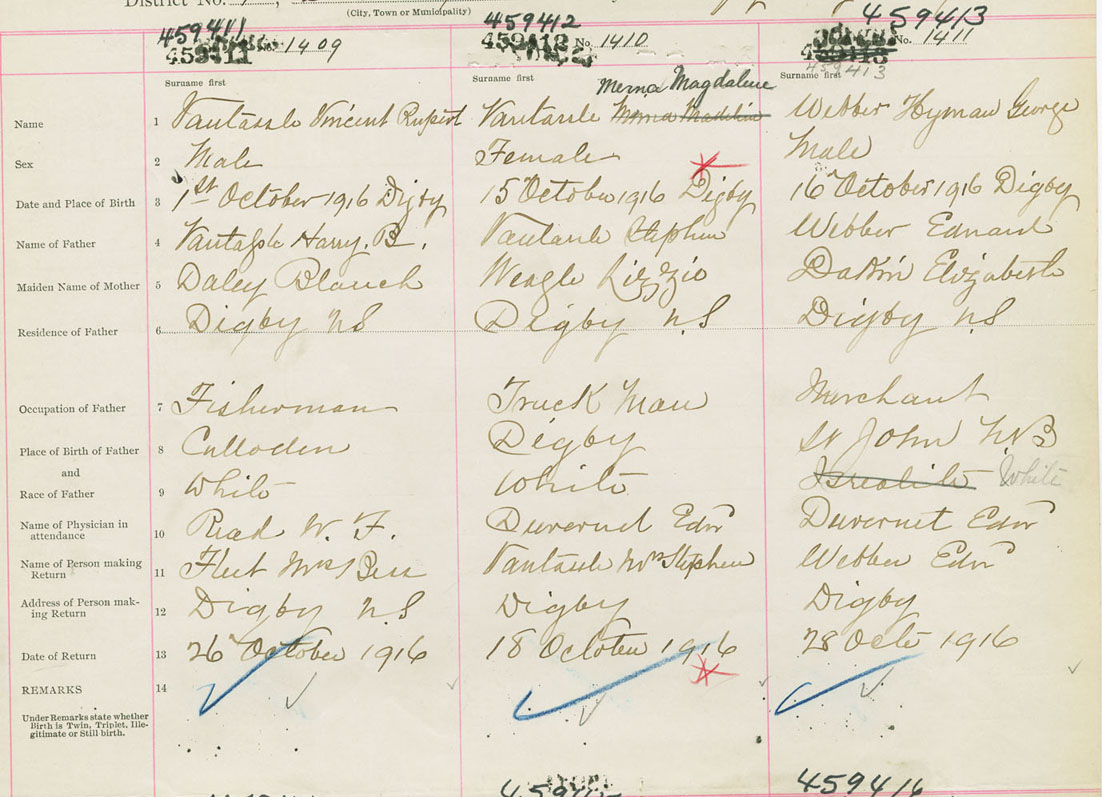 District No.
(City, Town or Municipality)
459411 459412 459413
459411 No. 1409 459412 No. 1410 No. 1411
459413
Surname first Surname first Surname first
Merna Magdalene
Name 1 Vantassle Vincent Rupert Vantassle Webber Hyman George
Sex 2 Male Female Male
Date and Place of Birth 3 1st October 1916 Digby 15 October 1916 Digby 16 October 1916 Digby
Name of Father 4 Vantassle Harry. B. Vantassle Stephen Webber Edward
Maiden Name of Mother 5 Daley Blanch Weagle Lizzie Dakin Elizabeth
Residence of Father 6 Digby NS Digby N.S Digby NS
Occupation of Father 7 Fisherman Truck Man Merchant
Place of Birth of Father 8 Culloden Digby St John N.B
and
Race of Father 9 White White Isrealite White
Name of Physician in
attendance 10 Read W. F. Duvernet Edw Duvernet Edw
Name of Person making
Return 11 Fleet Mrs Bess Vantassle Mrs Stephen Webber Edw
Address of Person mak-
ing Return 12 Digby N.S Digby Digby
Date of Return 13 26 October 1916 18 October 1916 28 Octr 1916
REMARKS 14
Under Remarks state whether
Birth is Twin, Triplet, Ille-
gitimate or Still birth.
459416